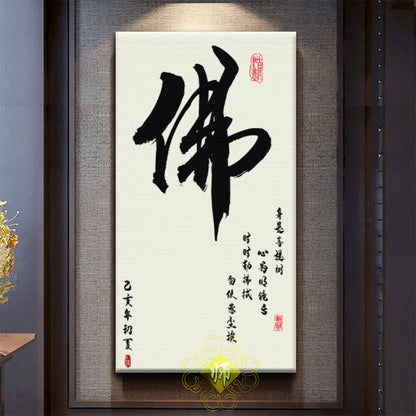 佛
身是菩提树
心為明鏡台
时时勤拂拭
勿使惹尘埃
乙亥年初夏
师